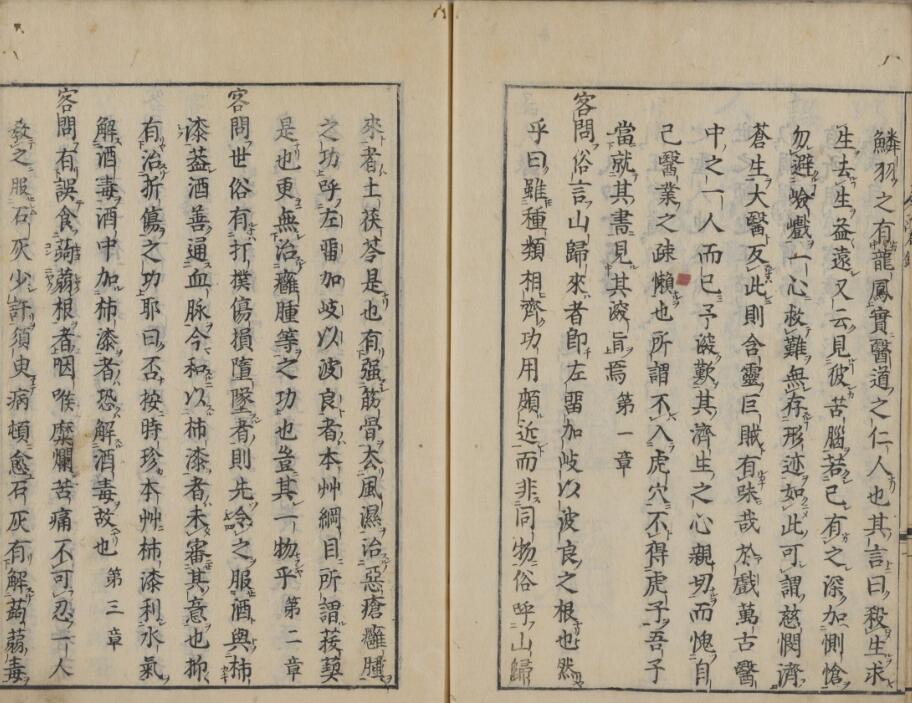 鱗羽之有龍鳳實醫道之仁人也其言曰殺生求
生去生益遠又云見彼苦腦若己有之深加惻愴
勿避嶮巇一心救難無存形迹如此可謂慈憫濟
蒼生大醫反此則含靈巨賊有味哉於戲萬古醫
中之一人而已予深歎其濟生之心親切而愧自
己醫業之疎懶也所謂不入虎穴不得虎子吾子
當就其書見其深旨焉 第一章
客問俗言山歸來者卽左畱加岐以波良之根也然
乎曰雖種類相齊功用頗近而非同物俗呼山歸
來者土茯苓是也有强筋骨去風濕治惡瘡癰腫
之功呼左畱加岐以波良者本艸綱目所謂菝葜
是也更無治癰腫等之功也豈其一物乎 第二章
客問世俗有打撲傷損墮墜者則先令之服酒與柹
漆葢酒善通血脉今和以柹漆者未審其意也抑
有治折傷之功耶曰否按時珍本艸柹漆利水氣
解酒毒酒中加柹漆者恐解酒毒故也 第三章
客問有誤食蒟蒻根者咽喉糜爛苦痛不可忍一人
敎之服石灰少許須臾病頓愈石灰有解蒟蒻毒